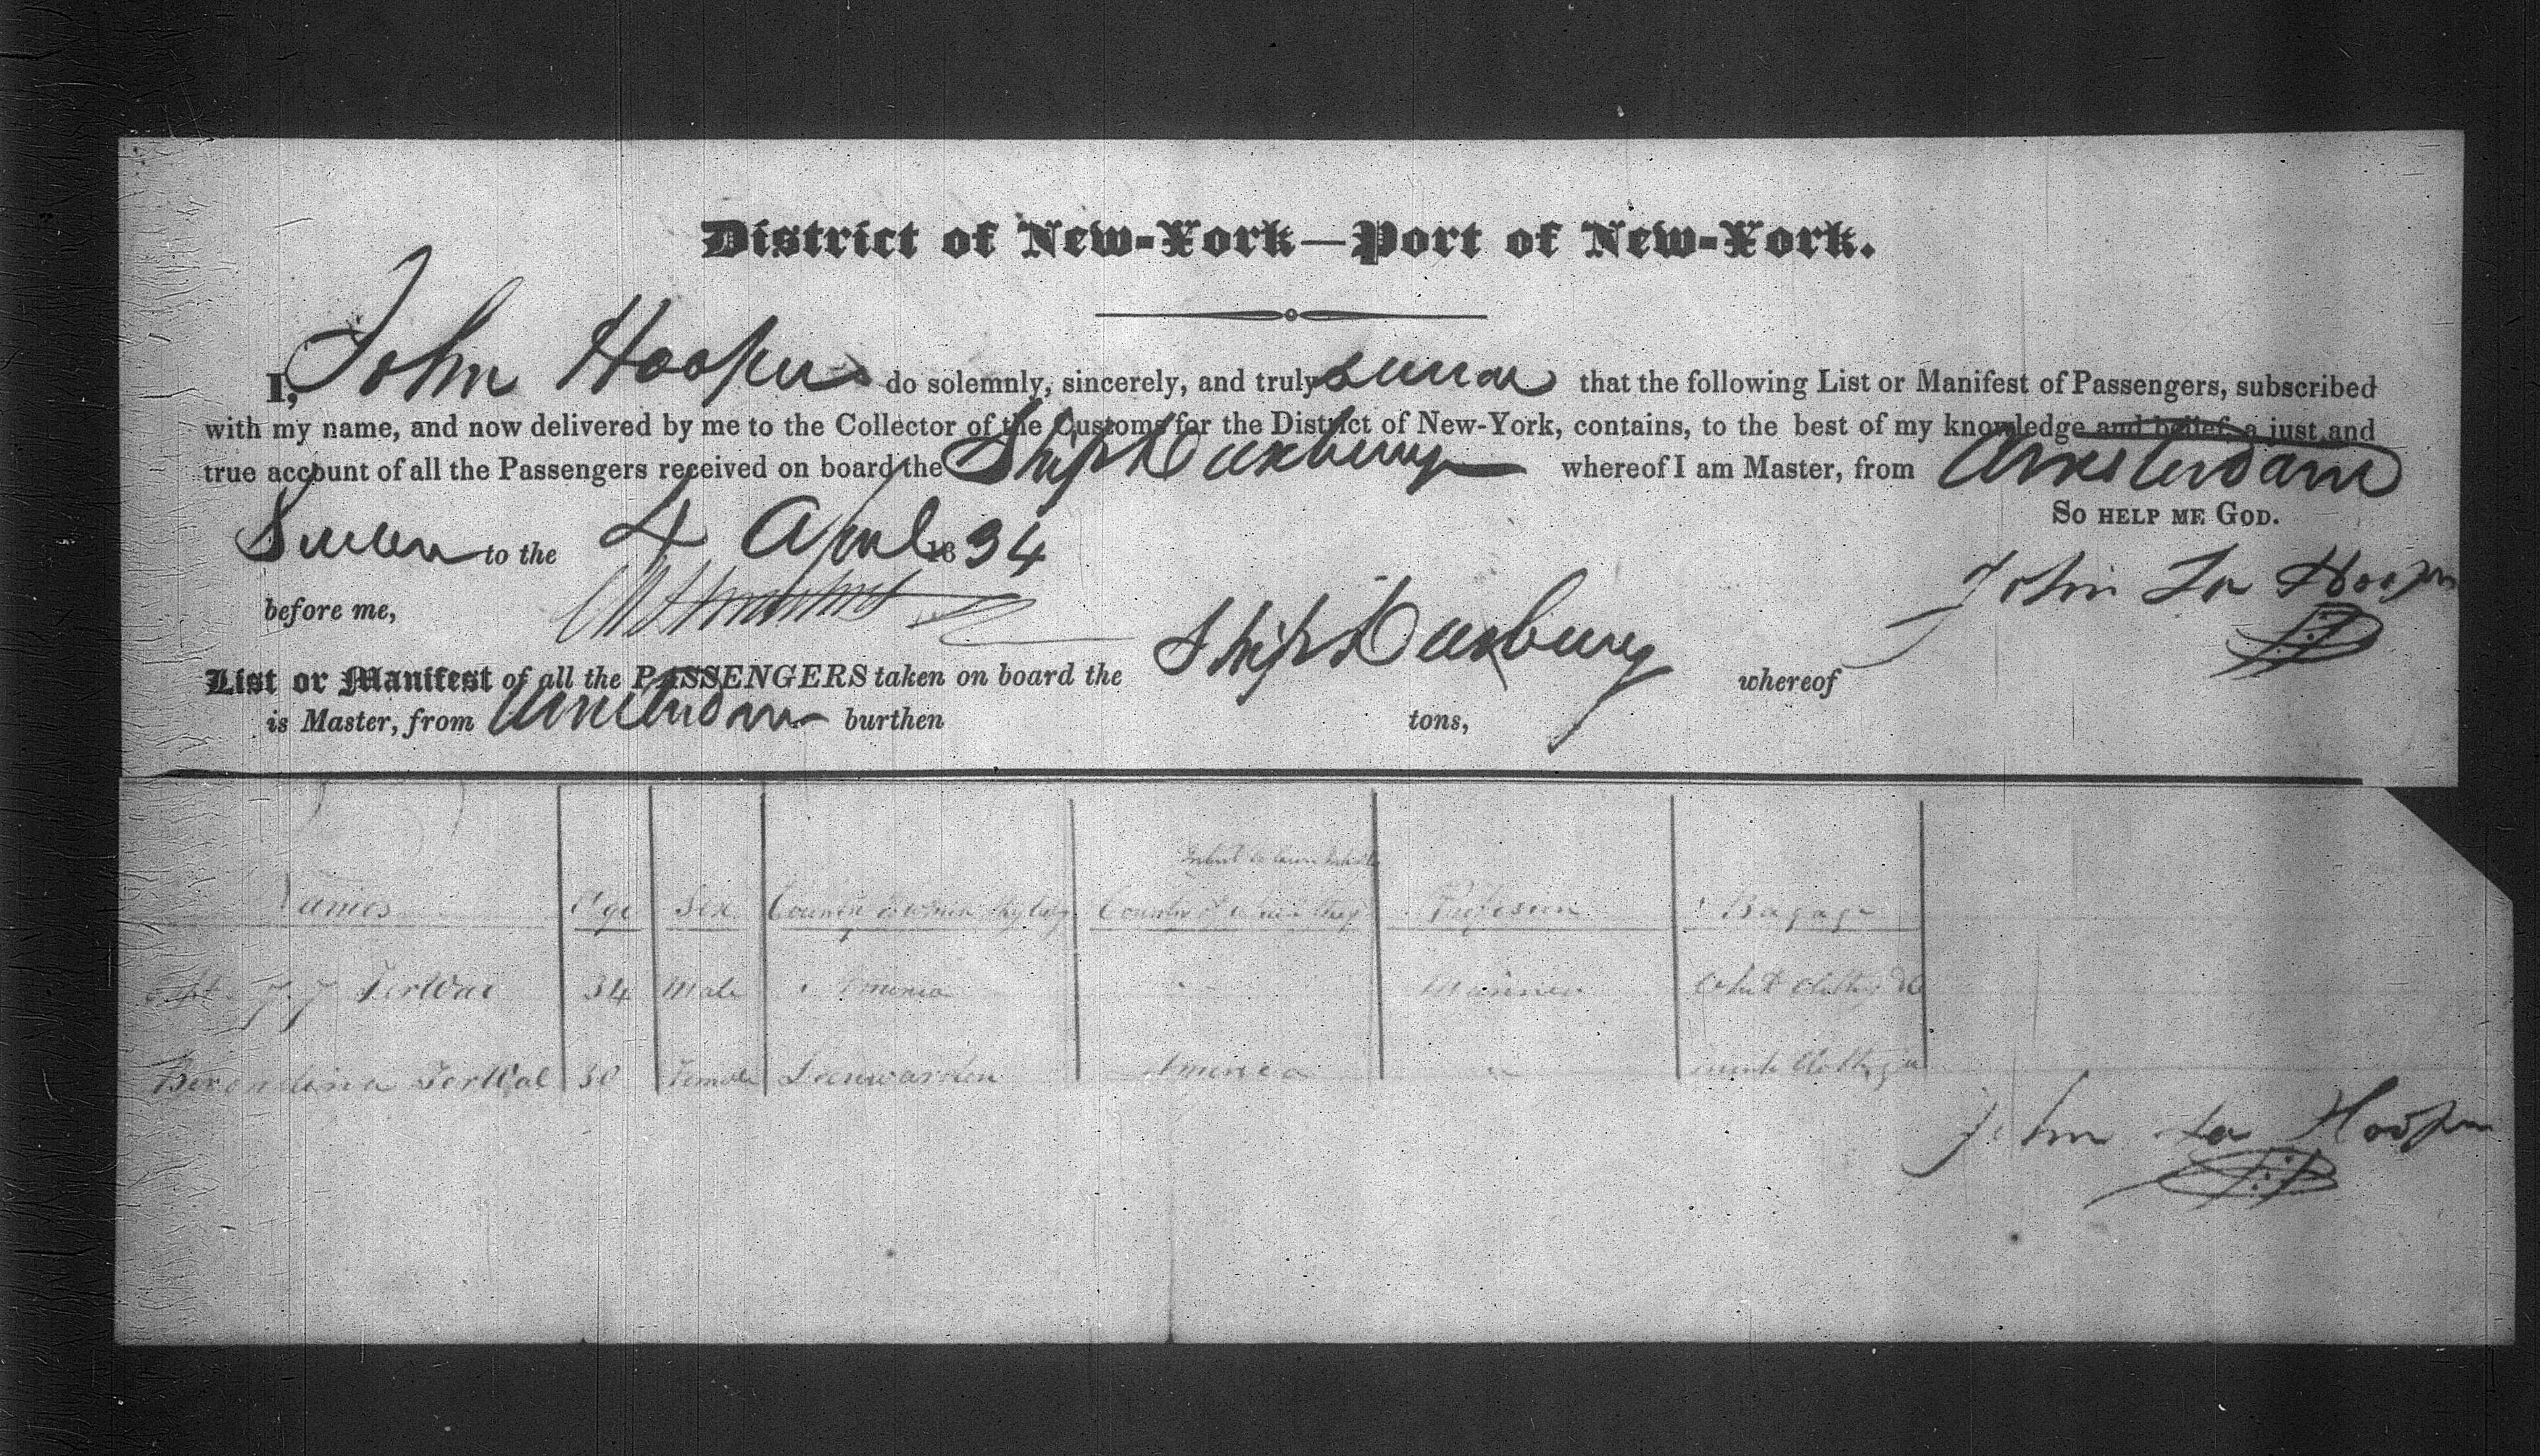 District of New-York—Port of New-York.
I, John Hooper do solemnly, sincerely, and truly swear that the following List or Manifest of Passengers, subscribed
with my name, and now delivered by me to the Collector of the Customs for the District of New-York, contains, to the best of my knowledge and belief, a just and
true account of all the Passengers received on board the Ship Duxbury whereof I am Master, from Amsterdam
So help me God.
Sworn to the 4 April 1834
John Hooper
before me,
List or Manifest of all the PASSENGERS taken on board the Ship Duxbury whereof
is Master, from Amsterdam burthen tons,
Names Age Sex Country to which they Country of which they Profesion Bagage
J. J. TerWal 34 Male America Mariner
TerWal 30 Female Leenwarden America
John Hooper